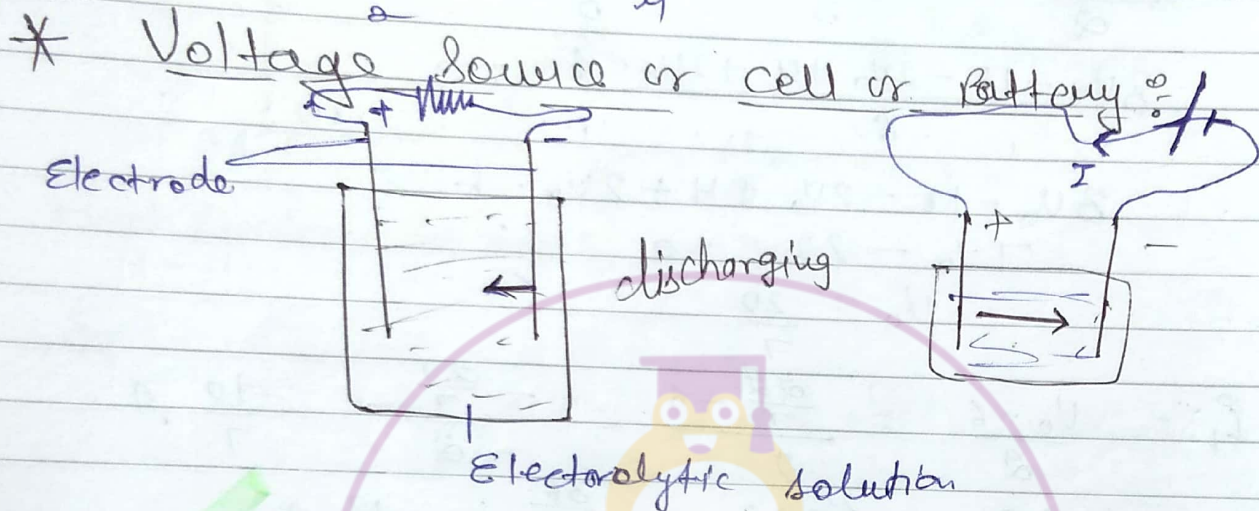 * Voltage Source or cell or Battery :-
+ + -
Electrode
I
+ -
discharging
Electrolytic solution